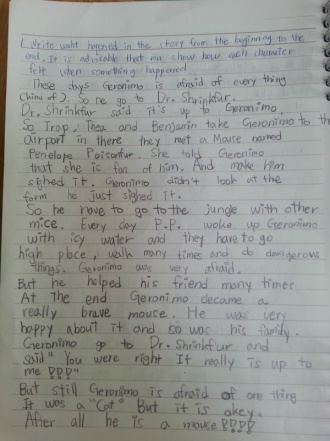 1. Write waht happened in the story from the beginning to the
end. It is advisable that you show how each character
felt when something happened.
These days Geronimo is afraid of every thing
(kind of). So he go to Dr. Shrinkfur.
Dr. Shrinkfur said it's up to Geronimo.
So Trap, Thea and Benjamin take Geronimo to the
airport in there they met a Mouse named
Penelope Poisonfur. She told Geronimo
that she is fan of him. And make him
sighed it. Geronimo didn't look at the
form he just sighed it.
So he have to go to the jungle with other
mice. Every day P.P. woke up Geronimo
with icy water and they have to go
high place, walk many times and do dangerous
things. Geronimo was very afraid.
But he helped his friend many times.
At the end Geronimo became a
really brave mouse. He was very
happy about it and so was his family.
Geronimo go to Dr. Shrinkfur and
said "You were right It really is up to
me !!!"
But still Geronimo is afraid of one thing
It was a "Cat" But it is okey.
After all he is a mouse !!!!